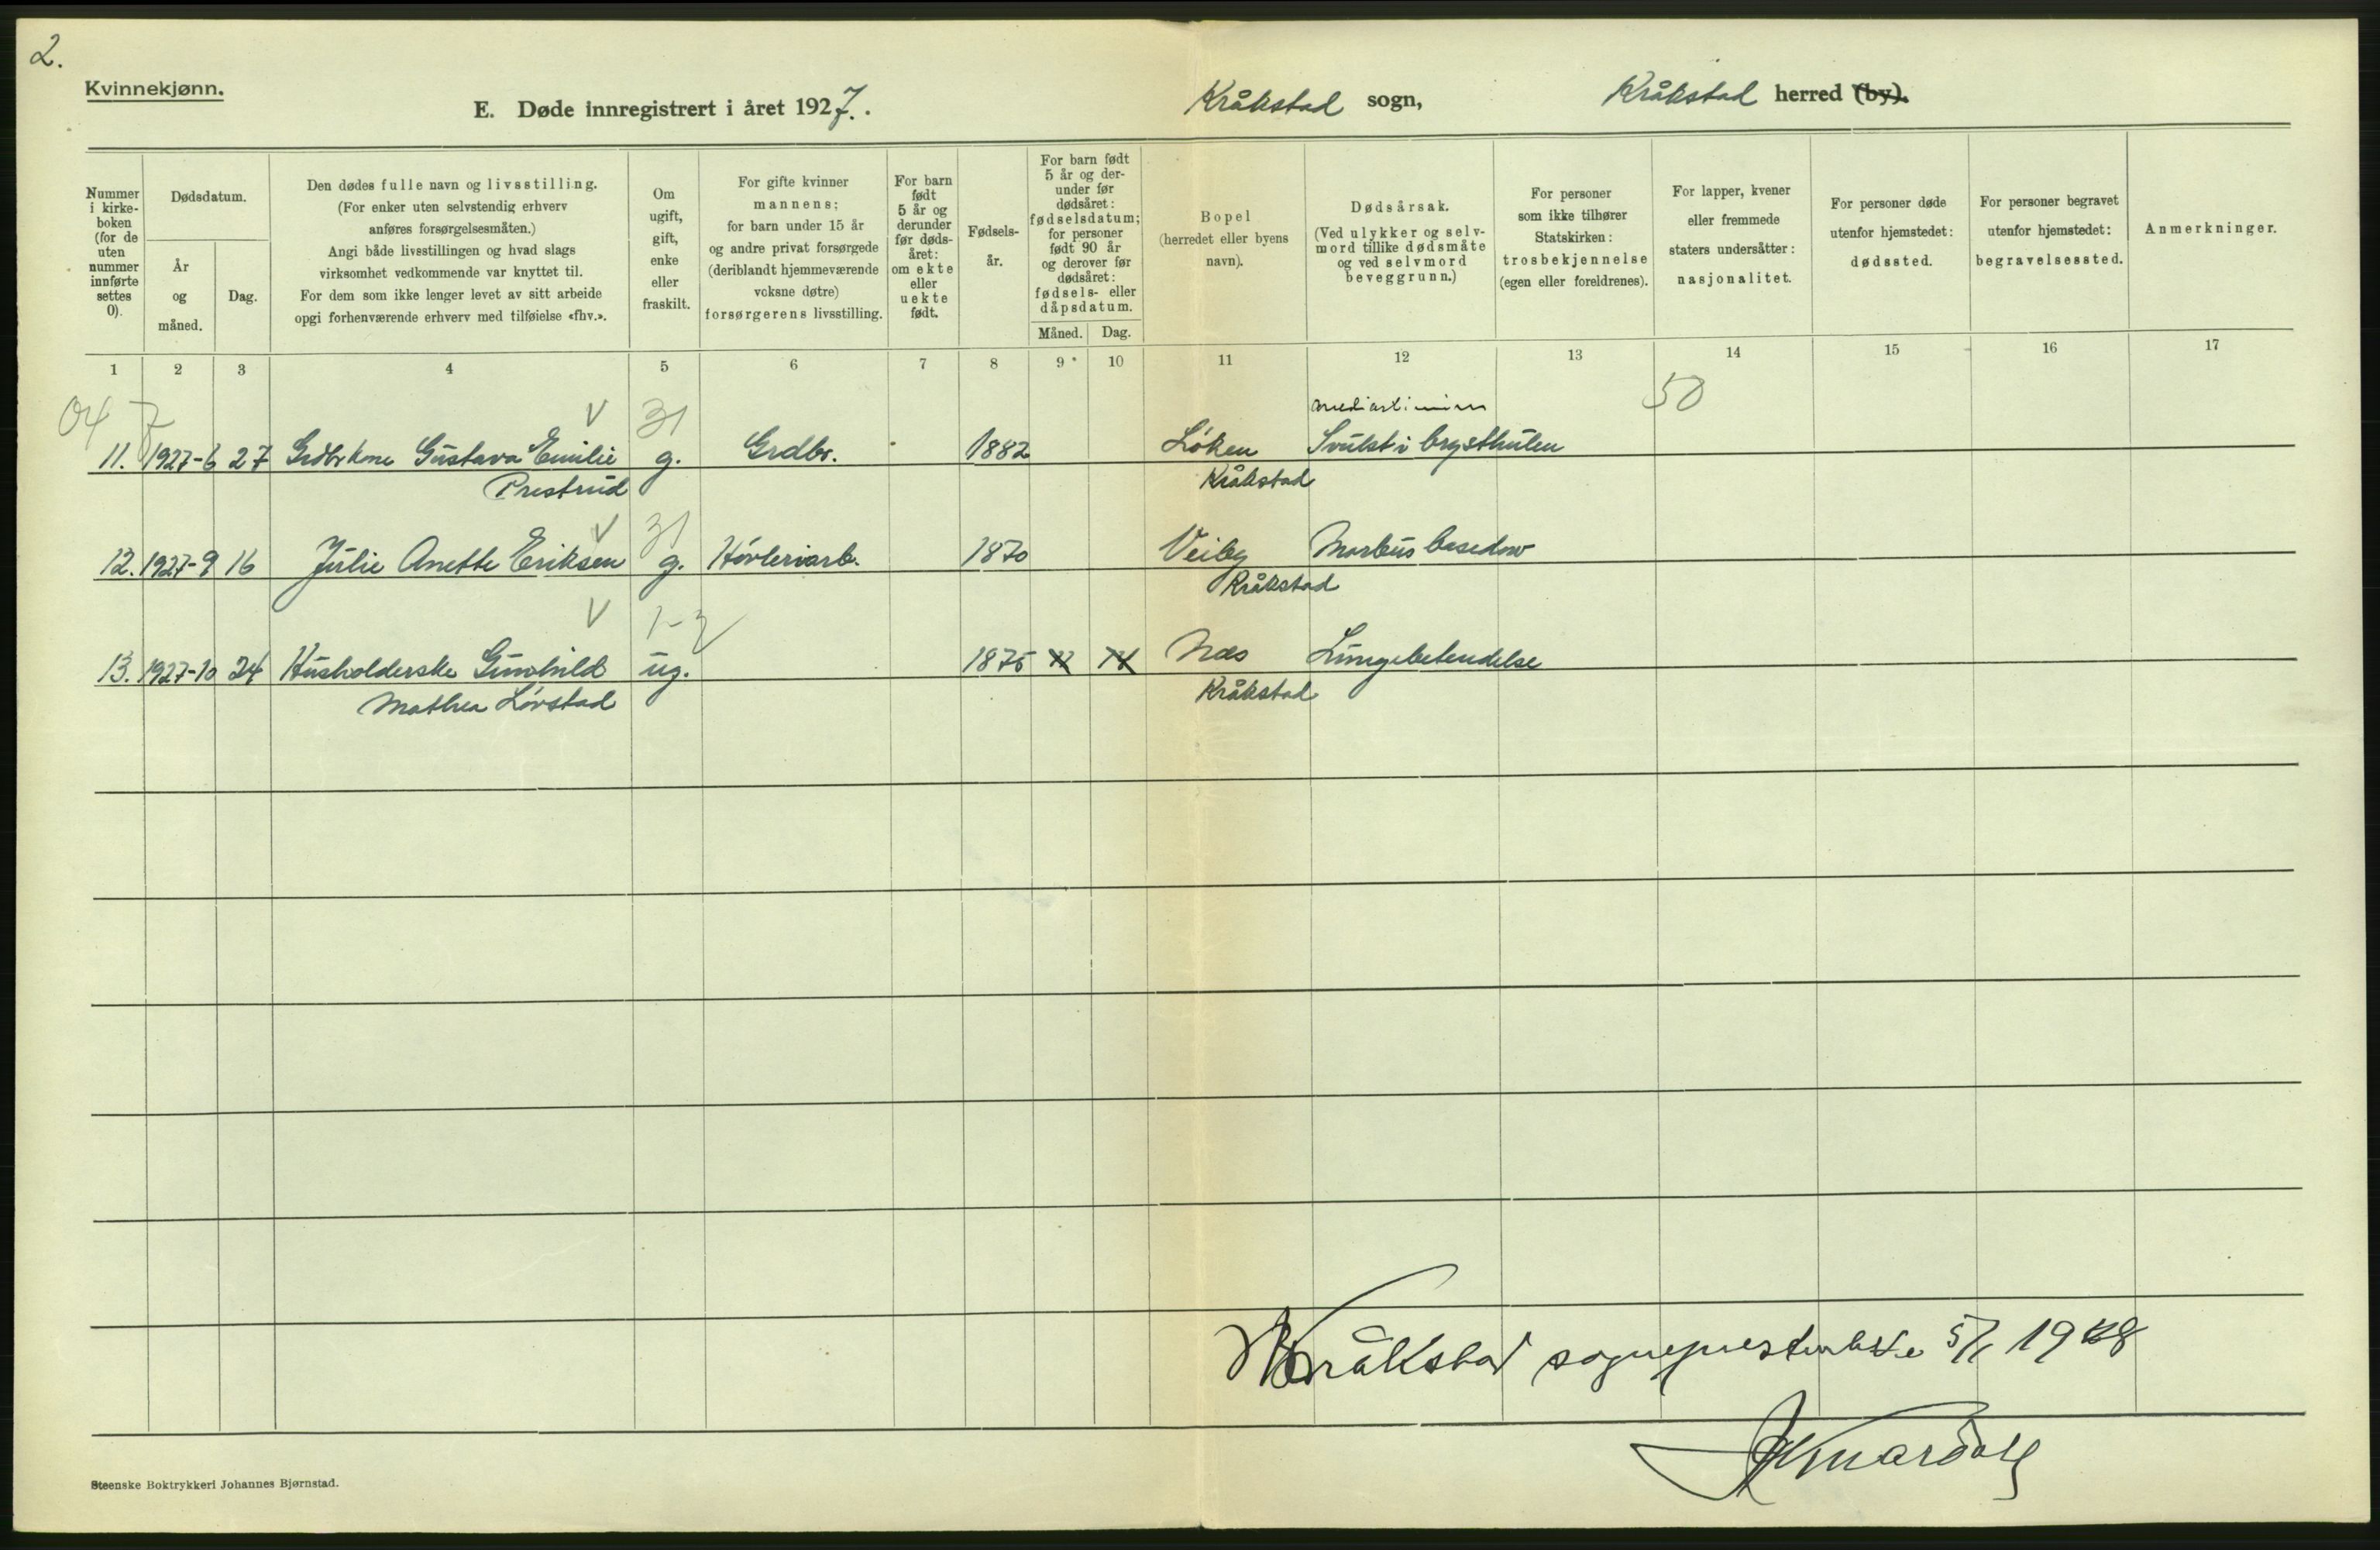 2.
Kvinnekjønn.
E. Døde innregistrert i året 1927. .
Kråkstad sogn,
Kråkstad herred (by).
Nummer i kirke- boken (for de uten nummer innførte settes 0).
Dødsdatum.
År og måned.
Dag.
Den dødes fulle navn og livsstilling.
(For enker uten selvstendig erhverv
anføres forsørgelsesmåten.)
Angi både livsstillingen og hvad slags
virksomhet vedkommende var knyttet til.
For dem som ikke lenger levet av sitt arbeide
opgi forhenværende erhverv med tilføielse «fhv.».
Om ugift, gift, enke eller fraskilt.
For gifte kvinner
mannens;
for barn under 15 år
og andre privat forsørgede
(deriblandt hjemmeværende
voksne døtre)
forsørgerens livsstilling.
For barn født 5 år og derunder før døds- året: om ekte eller uekte født.
Fødsels- år.
For barn født
5 år og der-
under før
dødsåret:
fødselsdatum;
for personer
født 90 år
og derover før
dødsåret:
fødsels- eller
dåpsdatum.
Måned. Dag.
Bopel
(herredet eller byens
navn).
Dødsårsak.
(Ved ulykker og selv-
mord tillike dødsmåte
og ved selvmord
beveggrunn.)
For personer
som ikke tilhører
Statskirken:
trosbekjennelse
(egen eller foreldrenes).
For lapper, kvener
eller fremmede
staters undersåtter:
nasjonalitet.
For personer døde
utenfor hjemstedet:
dødssted.
For personer begravet
utenfor hjemstedet:
begravelsessted.
Anmerkninger.
1 2 3 4 5 6 7 8 9 10 11 12 13 14 15 16 17
04 7 V 31 50
11. 1927-6 27 Grdbr kone Gustava Emilie g. Grdbr. 1882 Løken Svulst i brysthulen
Prestrud Kråkstad
V 31
12. 1927-9 16 Julie Anette Eriksen g. Høvleriarb. 1870 Veiby Morbus basedow
Kråkstad
V 1-2
13. 1927-10 24 Husholderske Gunhild ug. 1875 Næs Lungebetendelse
Mathea Løvstad Kråkstad
Kråkstad 5/1 1928
Steenske Boktrykkeri Johannes Bjørnstad.